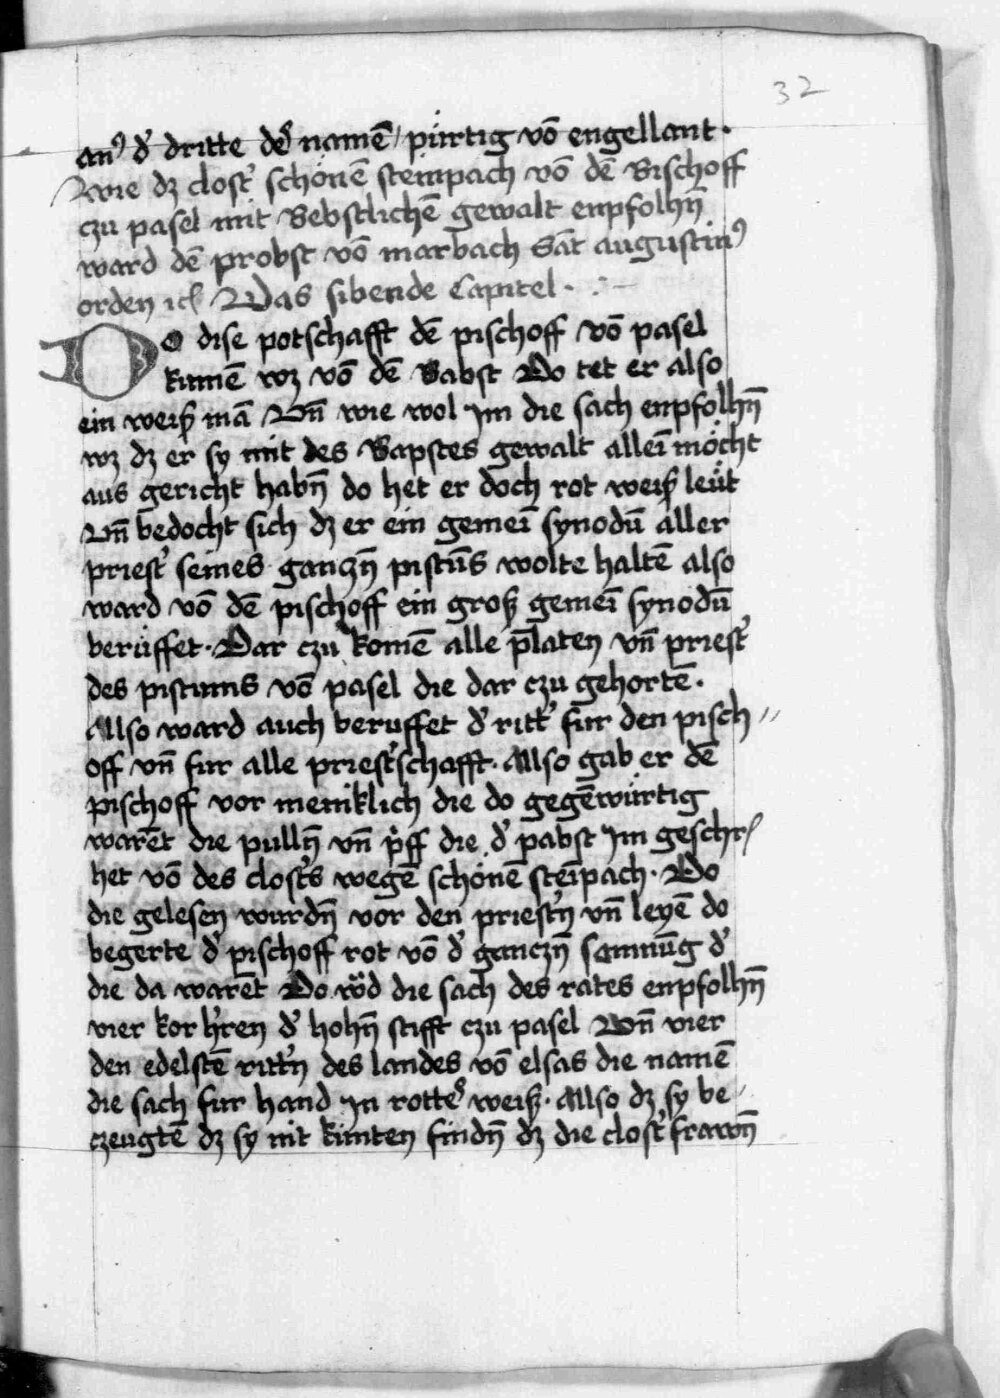 32
anꝰ dʼ dritte deẛ namē / pürtig vō engellant ·
Wie dz clostʼ schönē steinpach vō dē Bischoff
czu pasel mit Bebstlichē gewalt enpfolhn̄
ward dē probst vō marbach Sāt augustinꝰ
orden ꝛcꝭ Das sibende Capitel ·
DO dise potschafft dē pischoff vō pasel
kumē wz vō dē Babst Do tet er also
ein weiß mā Vn̄ wie wol Im die sach enpfolhn̄
wz dz er sy mit des Bapstes gewalt alleī möcht
aus gericht habn̄ do het er doch rot weiß leüt
Vn̄ bedocht sich dz er ein gemeī synodū aller
priestʼ seines ganczn̄ pistūs wolte haltē also
ward vō dē pischoff ein groß gemeī synodū
berüffet · Dar czu komē alle p̄laten vn̄ priestʼ
des pistums vō pasel die dar czu gehortē ·
Allso ward auch beruffet dʼ rittʼ fur den pisch//
off vn̄ fur alle priestʼschafft · Allso gab er dē
pischoff vor meniklich die do gegēwürtig
warēt die pulln̄ vn̄ pʼff die dʼ pabst Im geschrꝭ
het vō des clostʼs wegē schönē steīpach · Do
die gelesen wurdn̄ vor den priestʼn vn̄ leyē do
begerte dʼ pischoff rot vō dʼ ganczn̄ samnūg dʼ
die da warēt Do wͦd die sach des rates enpfolhn̄
vier kor hʼren dʼ hohn̄ stifft czu pasel Vn̄ vier
den edelstē rittʼn des landes vō elsas die namē
die sach fur hand In rotteẛ weiß · Allso dz sy be
czeugtē dz sy nit kunten findn̄ dz die clostʼ frawn̄